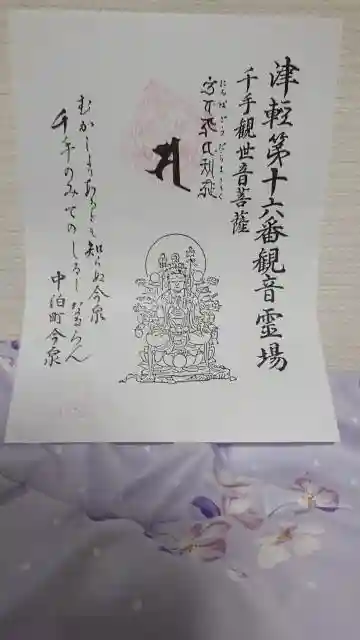 津軽第十六番観音霊場
千手観世音菩薩
むかしよりあるとも知らぬ今泉
千手のみてのしるしなるらん
中泊町今泉